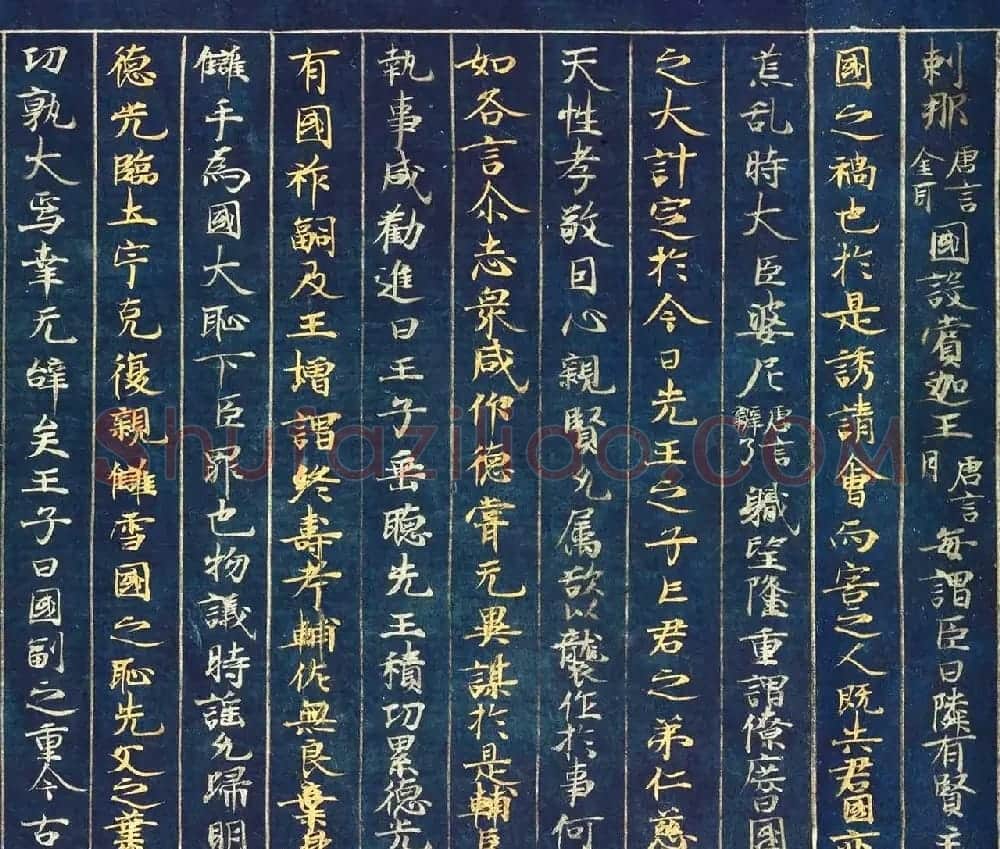 刺那唐言金耳國設賞迦王唐言月每謂臣曰隣有賢主
國之禍也於是誘請會而害之人既失君國亦
荒乱時大臣婆尼唐言辯了軄望隆重謂僚庶曰國
之大計定於今日先王之子亡君之弟仁慈
天性孝敬因心親賢允属欲以襲位於事何
如各言尒志衆咸仰德甞无異謀於是輔臣
執事咸勸進曰王子垂聴先王積功累德光
有國祚嗣及王增謂終壽考輔佐無良棄身
讎手為國大恥下臣罪也物議時謡允歸明
德光臨土宇克復親讎雪國之恥先父之業
功孰大焉幸无辭矣王子曰國副之重今古
Shufaziliao.COM